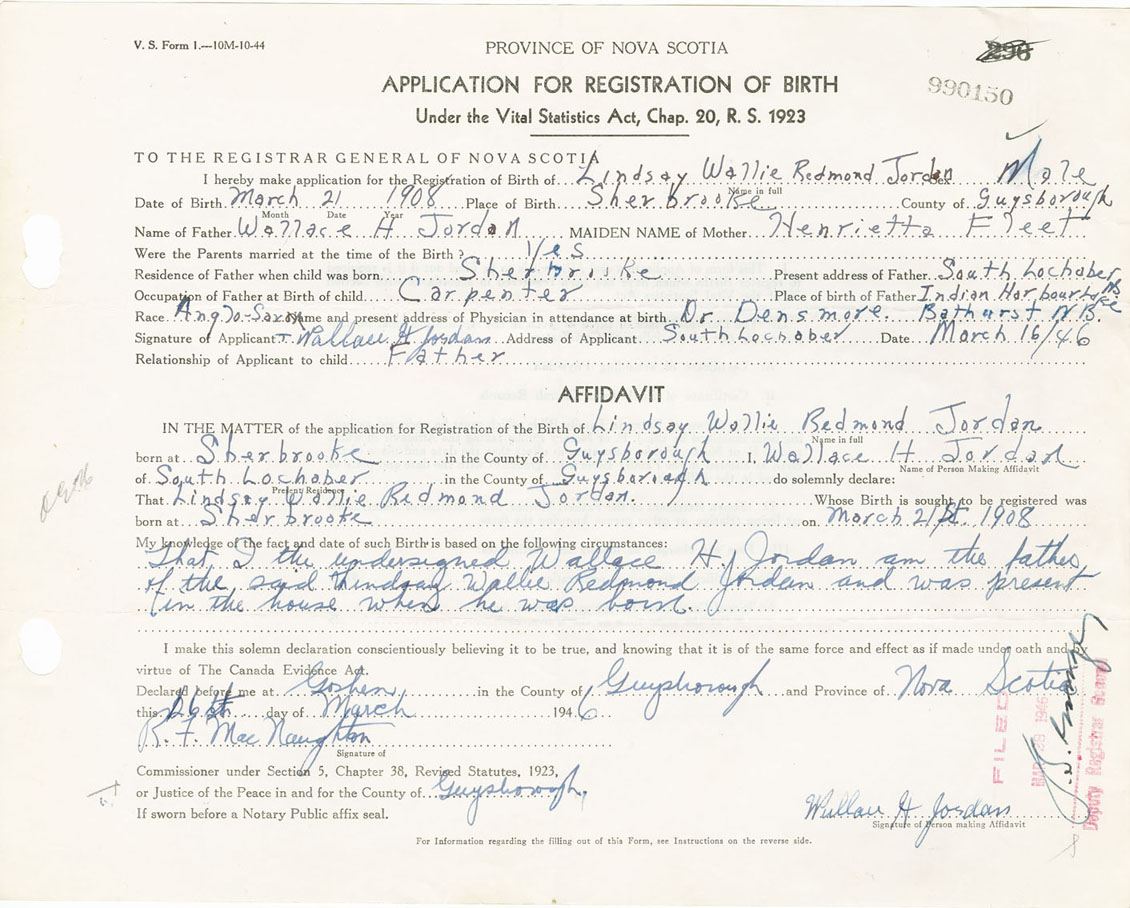 V. S. Form 1.—10M-10-44
PROVINCE OF NOVA SCOTIA
296
APPLICATION FOR REGISTRATION OF BIRTH
990150
Under the Vital Statistics Act, Chap. 20, R. S. 1923
TO THE REGISTRAR GENERAL OF NOVA SCOTIA
I hereby make application for the Registration of Birth of Lindsay Wallie Redmond Jordan Sex Male
Name in full
Date of Birth March 21 1908 Place of Birth Sherbrooke County of Guysborough
Month Date Year
Name of Father Wallace H Jordan MAIDEN NAME of Mother Henrietta Fleet
Were the Parents married at the time of the Birth? Yes
Residence of Father when child was born Sherbrooke Present address of Father South Lochaber NS
Occupation of Father at Birth of child Carpenter Place of birth of Father Indian Harbour Lake
Race Anglo-Saxon Name and present address of Physician in attendance at birth Dr Densmore. Bathurst N.B.
Signature of Applicant Wallace H Jordan Address of Applicant South Lochaber Date March 16/46
Relationship of Applicant to child Father
AFFIDAVIT
IN THE MATTER of the application for Registration of the Birth of Lindsay Wallie Redmond Jordan
Name in full
born at Sherbrooke in the County of Guysborough I, Wallace H Jordan
Name of Person Making Affidavit
of South Lochaber in the County of Guysborough do solemnly declare:
Present Residence
That Lindsay Wallie Redmond Jordan. Whose Birth is sought to be registered was
born at Sherbrooke on March 21st 1908
My knowledge of the fact and date of such Birth is based on the following circumstances:
That I the undersigned Wallace H. Jordan am the father
of the said Lindsay Wallie Redmond Jordan and was present
in the house when he was born.
I make this solemn declaration conscientiously believing it to be true, and knowing that it is of the same force and effect as if made under oath and by
virtue of The Canada Evidence Act.
Declared before me at Goshen in the County of Guysborough and Province of Nova Scotia
this 26th day of March 1946
R. F. MacNaughton
Signature of
Commissioner under Section 5, Chapter 38, Revised Statutes, 1923,
or Justice of the Peace in and for the County of Guysborough.
If sworn before a Notary Public affix seal.
Wallace H Jordan
Signature of Person making Affidavit
For Information regarding the filling out of this Form, see Instructions on the reverse side.
FILED
MAR 28 1946
Deputy Registrar General